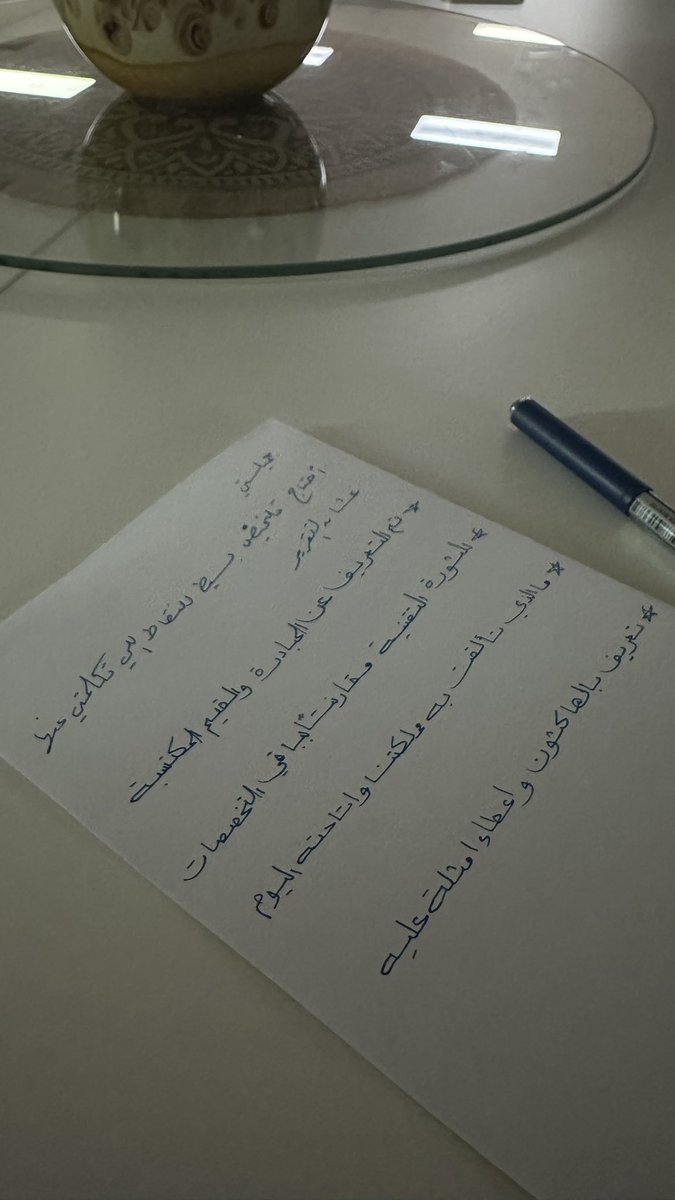 جلستي
أحتاج تلخيص بسيط للنقاط اللي تكلمتي عنها
عشان التقرير
* تم التعريف عن المبادرة والقيم المكتسبة
* الثورة التقنية في التخصصات
* ما الذي تألقت به مملكتنا واتاحته اليوم
* تعريف بالهاكثون و اعطاء امثلة عليه